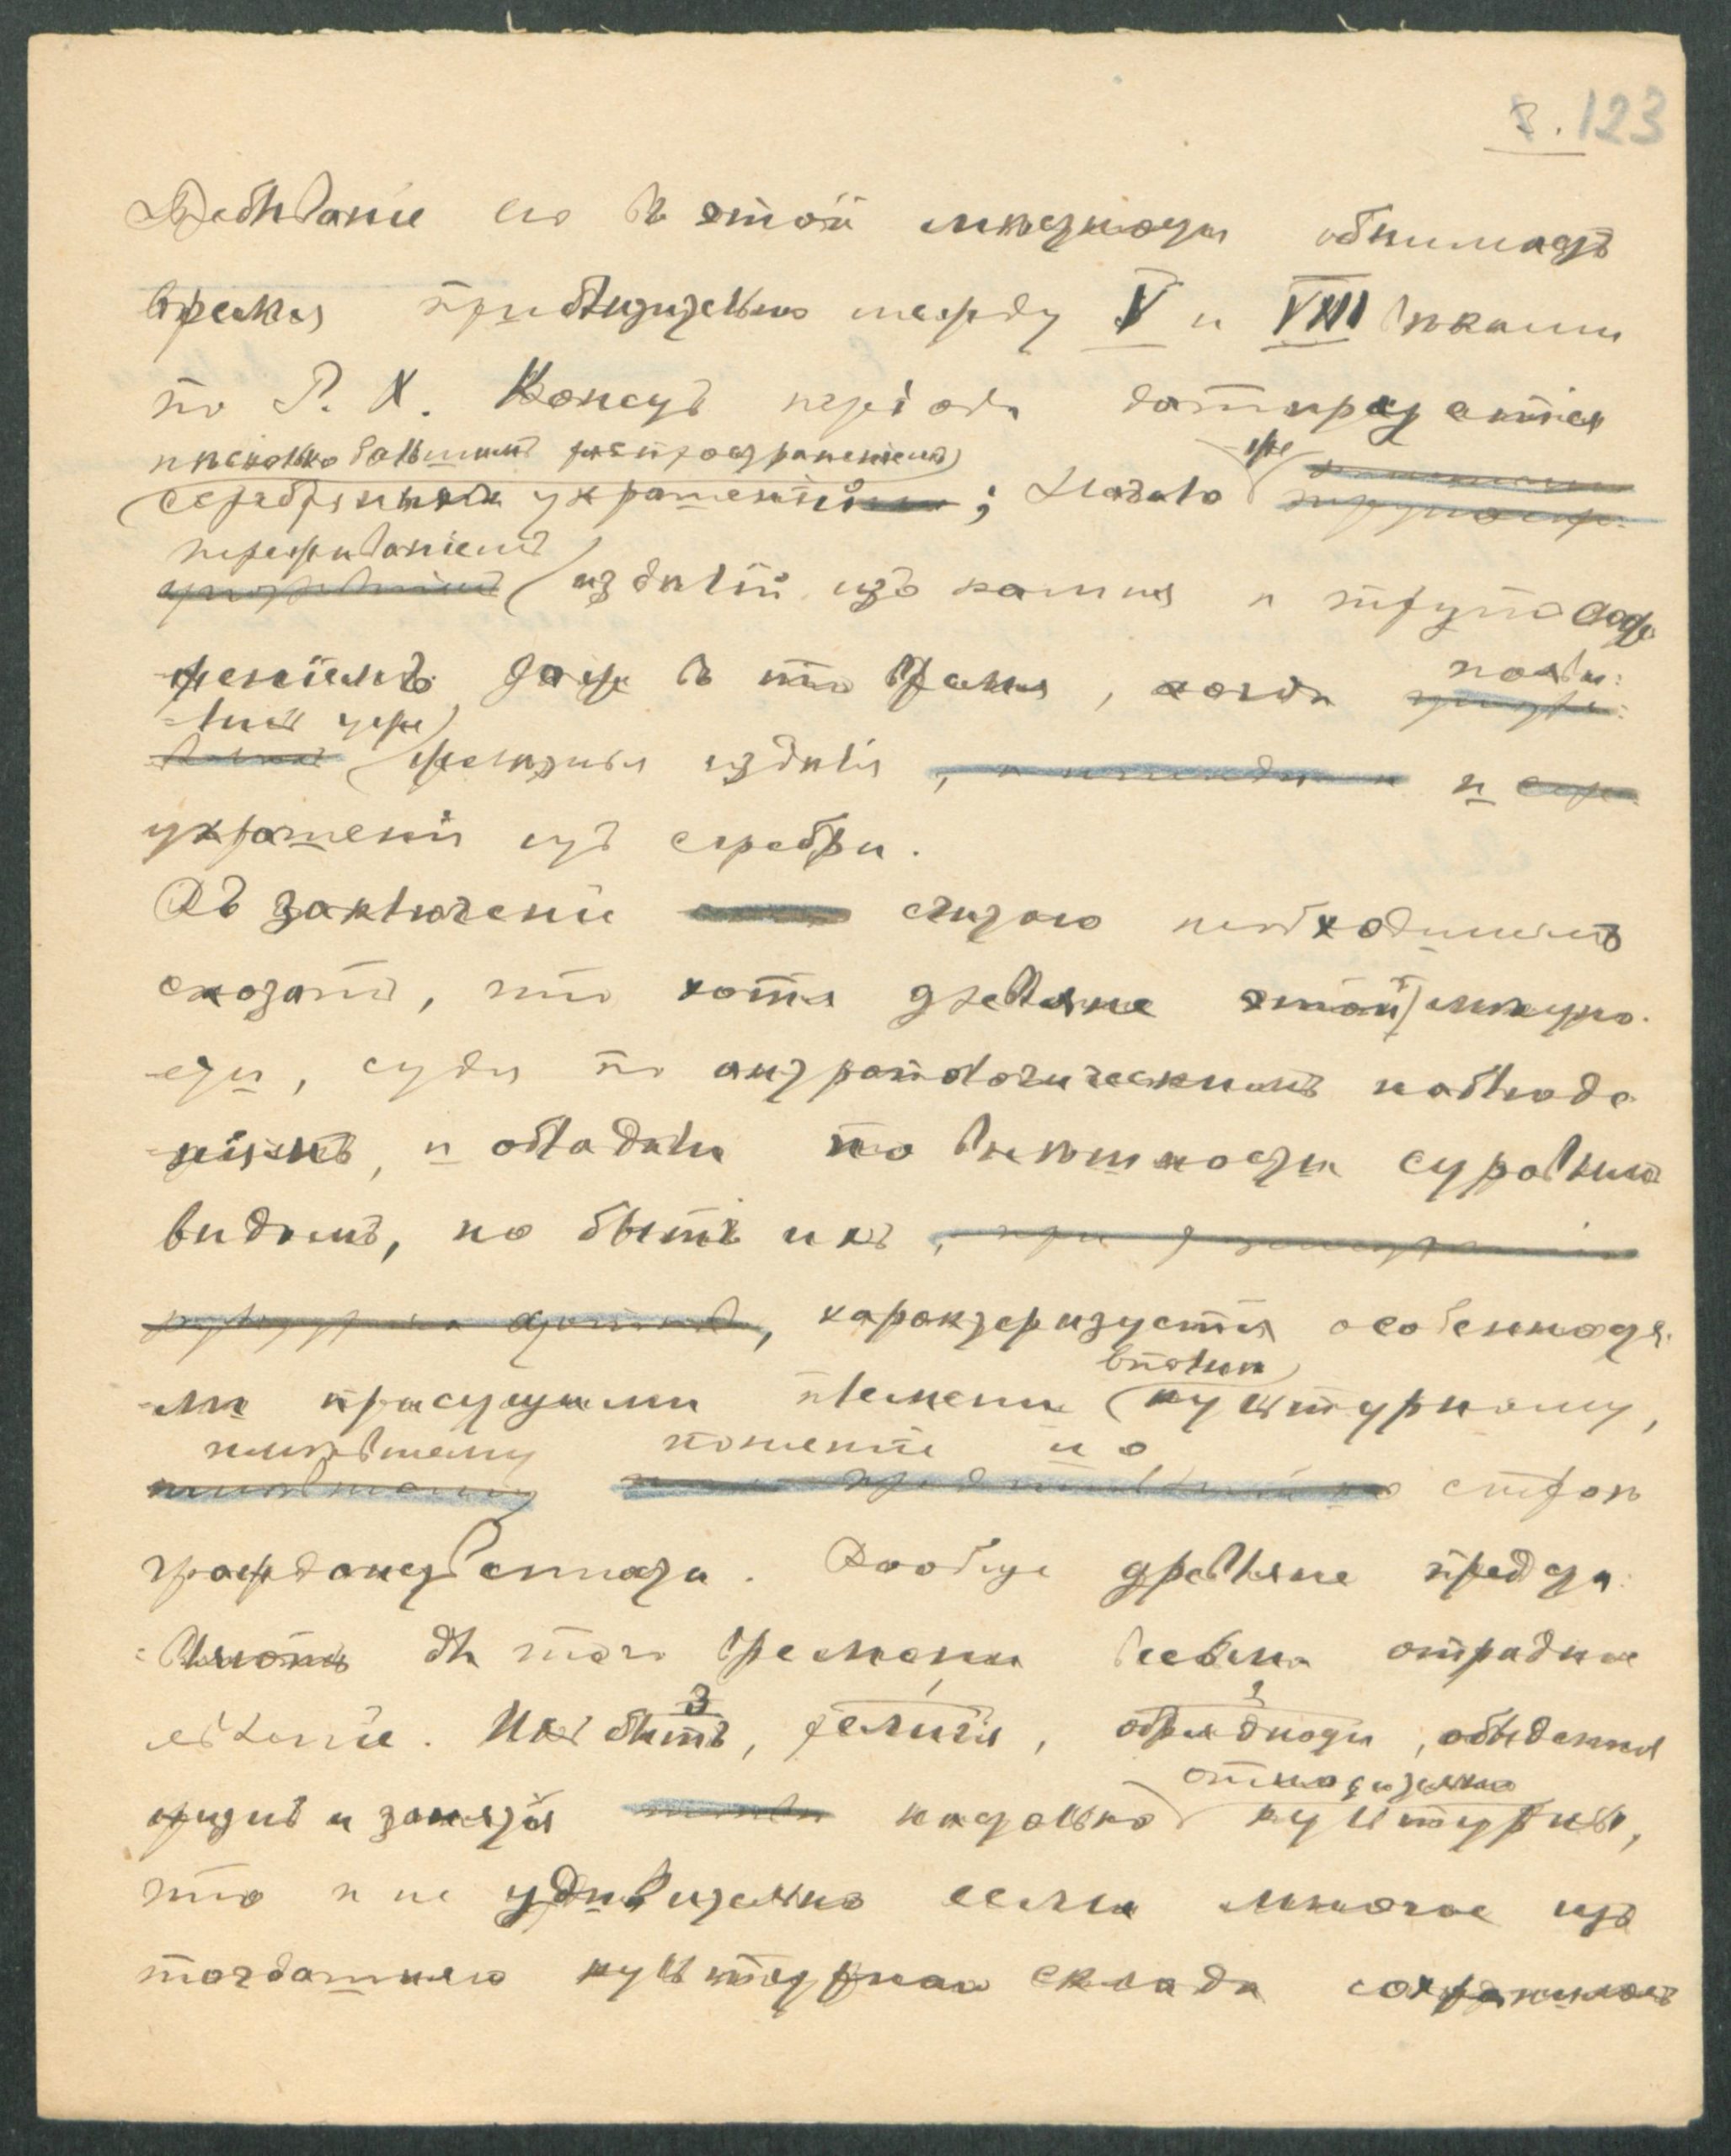 8. 123
Пребываніе его въ этой мѣстности обнимаетъ
время приблизительно между V и VIII вѣками
по Р. Х. Конецъ періода датируется
нѣсколько большимъ распространеніемъ
серебряныхъ украшеній; Начало же
переживаніемъ
издѣлій изъ камня и трупосож
женіемъ даже въ то время, когда появи
лись уже
желѣзныя издѣлія и
украшенія изъ серебра.
Въ заключеніе считаю необходимымъ
сказать, что хотя древляне этой мѣстно
сти, судя по антропологическимъ наблюде
ніямъ, и обладали по внѣшности суровымъ
видомъ, но бытъ ихъ
, характеризуется особенностя
ми присущими племени культурному,
вполнѣ
имѣвшему понятіе и о
строѣ
гражданственности. Вообще древляне предста
вляютъ для того времени весьма отрадное
явленіе. Ихъ бытъ, религія, обрядности, обыденная
3 1 2
жизнь и занятія настолько культурны,
относительно
что и не удивительно если многое изъ
тогдашняго культурнаго склада сохранилось